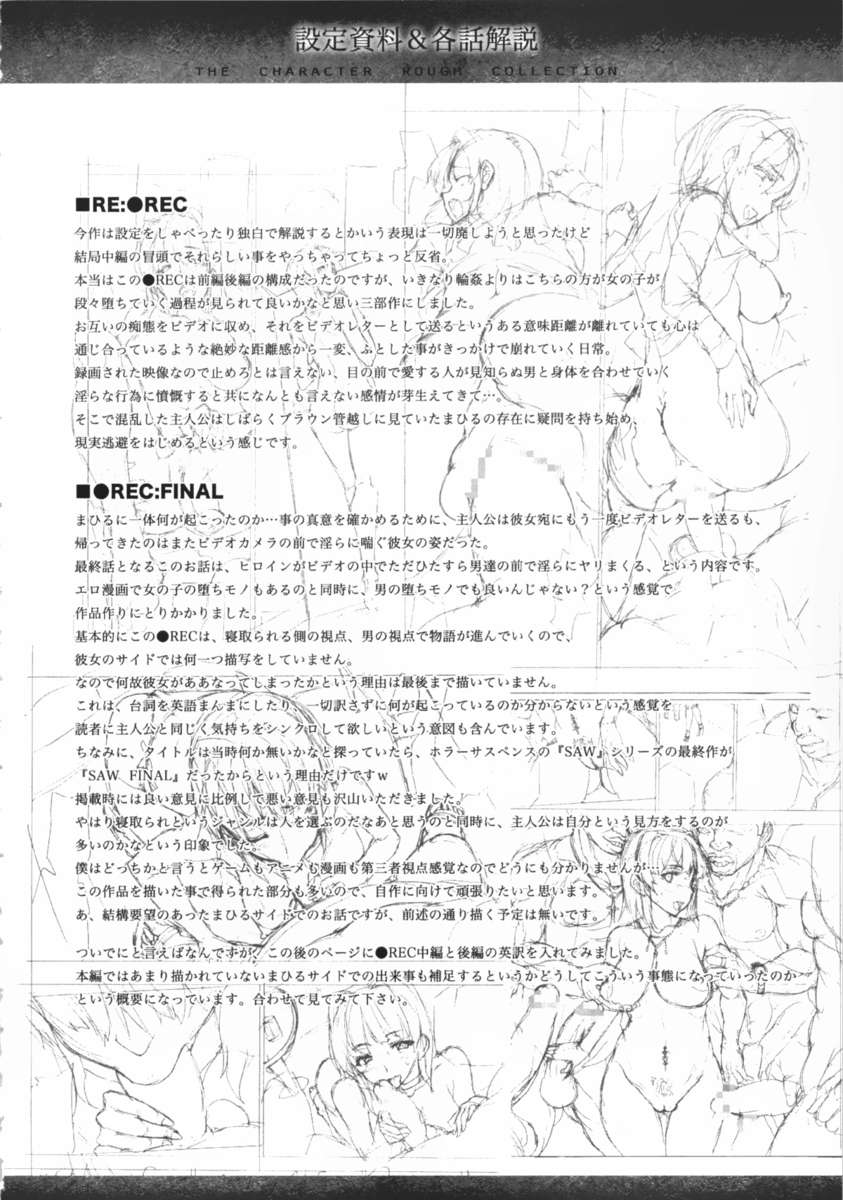 設定資料＆各話解説
THE CHARACTER ROUGH COLLECTION
■RE:●REC
今作は設定をしゃべったり独白で解説するとかいう表現は一切廃しようと思ったけど
結局中編の冒頭でそれらしい事をやっちゃってちょっと反省。
本当はこの●RECは前編後編の構成だったのですが、いきなり輪姦よりはこちらの方が女の子が
段々堕ちていく過程が見られて良いかなと思い三部作にしました。
お互いの痴態をビデオに収め、それをビデオレターとして送るというある意味距離が離れていても心は
通じ合っているような絶妙な距離感から一変、ふとした事がきっかけで崩れていく日常。
録画された映像なので止めろとは言えない、目の前で愛する人が見知らぬ男と身体を合わせていく
淫らな行為に憤慨すると共になんとも言えない感情が芽生えてきて…。
そこで混乱した主人公はしばらくブラウン管越しに見ていたまひるの存在に疑問を持ち始め、
現実逃避をはじめるという感じです。
■●REC:FINAL
まひるに一体何が起こったのか…事の真意を確かめるために、主人公は彼女宛にもう一度ビデオレターを送るも、
帰ってきたのはまたビデオカメラの前で淫らに喘ぐ彼女の姿だった。
最終話となるこのお話は、ヒロインがビデオの中でただひたすら男達の前で淫らにヤリまくる、という内容です。
エロ漫画で女の子の堕ちモノもあるのと同時に、男の堕ちモノでも良いんじゃない？という感覚で
作品作りにとりかかりました。
基本的にこの●RECは、寝取られる側の視点、男の視点で物語が進んでいくので、
彼女のサイドでは何一つ描写をしていません。
なので何故彼女がああなってしまったかという理由は最後まで描いていません。
これは、台詞を英語まんまにしたり、一切訳さずに何が起こっているのか分からないという感覚を
読者に主人公と同じく気持ちをシンクロして欲しいという意図も含んでいます。
ちなみに、タイトルは当時何か無いかなと探っていたら、ホラーサスペンスの『SAW』シリーズの最終作が
『SAW FINAL』だったからという理由だけですw
掲載時には良い意見に比例して悪い意見も沢山いただきました。
やはり寝取られというジャンルは人を選ぶのだなあと思うのと同時に、主人公は自分という見方をするのが
多いのかなという印象でした。
僕はどっちかと言うとゲームもアニメも漫画も第三者視点感覚なのでどうにも分かりませんが…
この作品を描いた事で得られた部分も多いので、自作に向けて頑張りたいと思います。
あ、結構要望のあったまひるサイドでのお話ですが、前述の通り描く予定は無いです。
ついでにと言えばなんですが、この後のページに●REC中編と後編の英訳を入れてみました。
本編ではあまり描かれていないまひるサイドでの出来事も補足するというかどうしてこういう事態になっていったのか
という概要になっています。合わせて見てみて下さい。